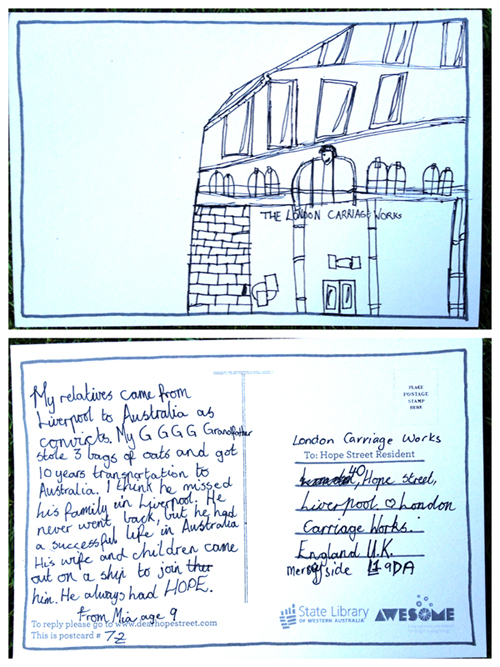 THE LONDON CARRIAGE WORKS
My relatives came from
Liverpool to Australia as
convicts. My G G G G Grandfather
stole 3 bags of oats and got
10 years transportation to
Australia. I think he missed
his family in Liverpool. He
never went back, but he had
a successful life in Australia
His wife and children came
out on a ship to join
him. He always had HOPE.
From Mia age 9
To reply please go to www.dearhopestreet.com
This is postcard # 72
PLACE
POSTAGE
STAMP
HERE
London Carriage Works
To: Hope Street Resident
40 Hope Street,
Liverpool ♡ London
Carriage Works.
England U.K.
Merseyside L1 9DA
State Library
OF WESTERN AUSTRALIA
AWESOME